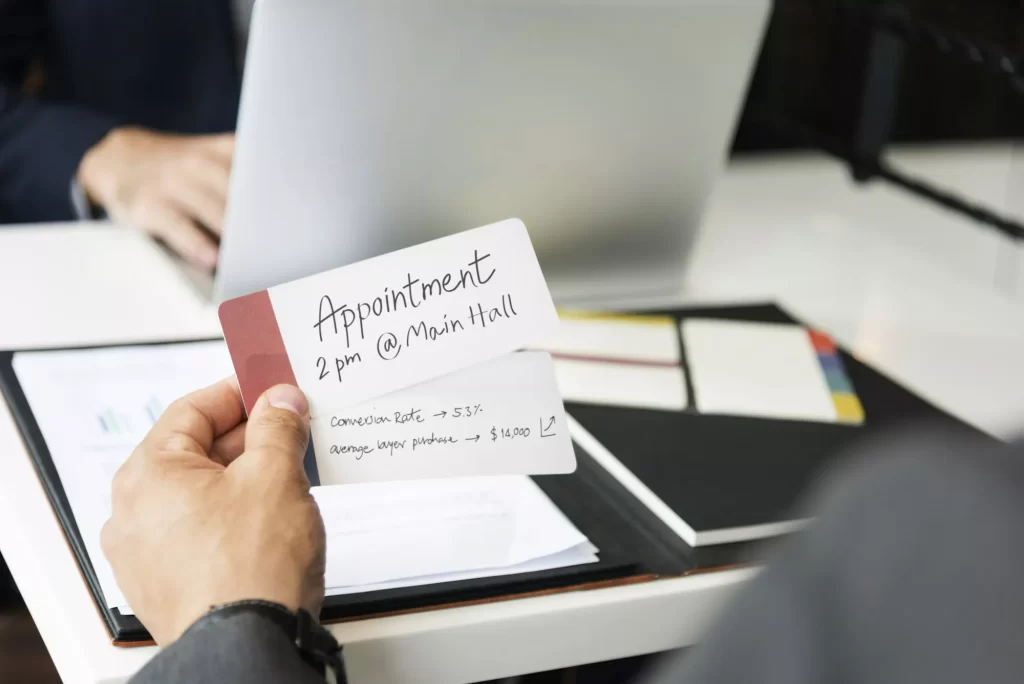 Appointment
2 pm @ Main Hall
Conversion Rate → 5.3%
average buyer purchase → $14,000